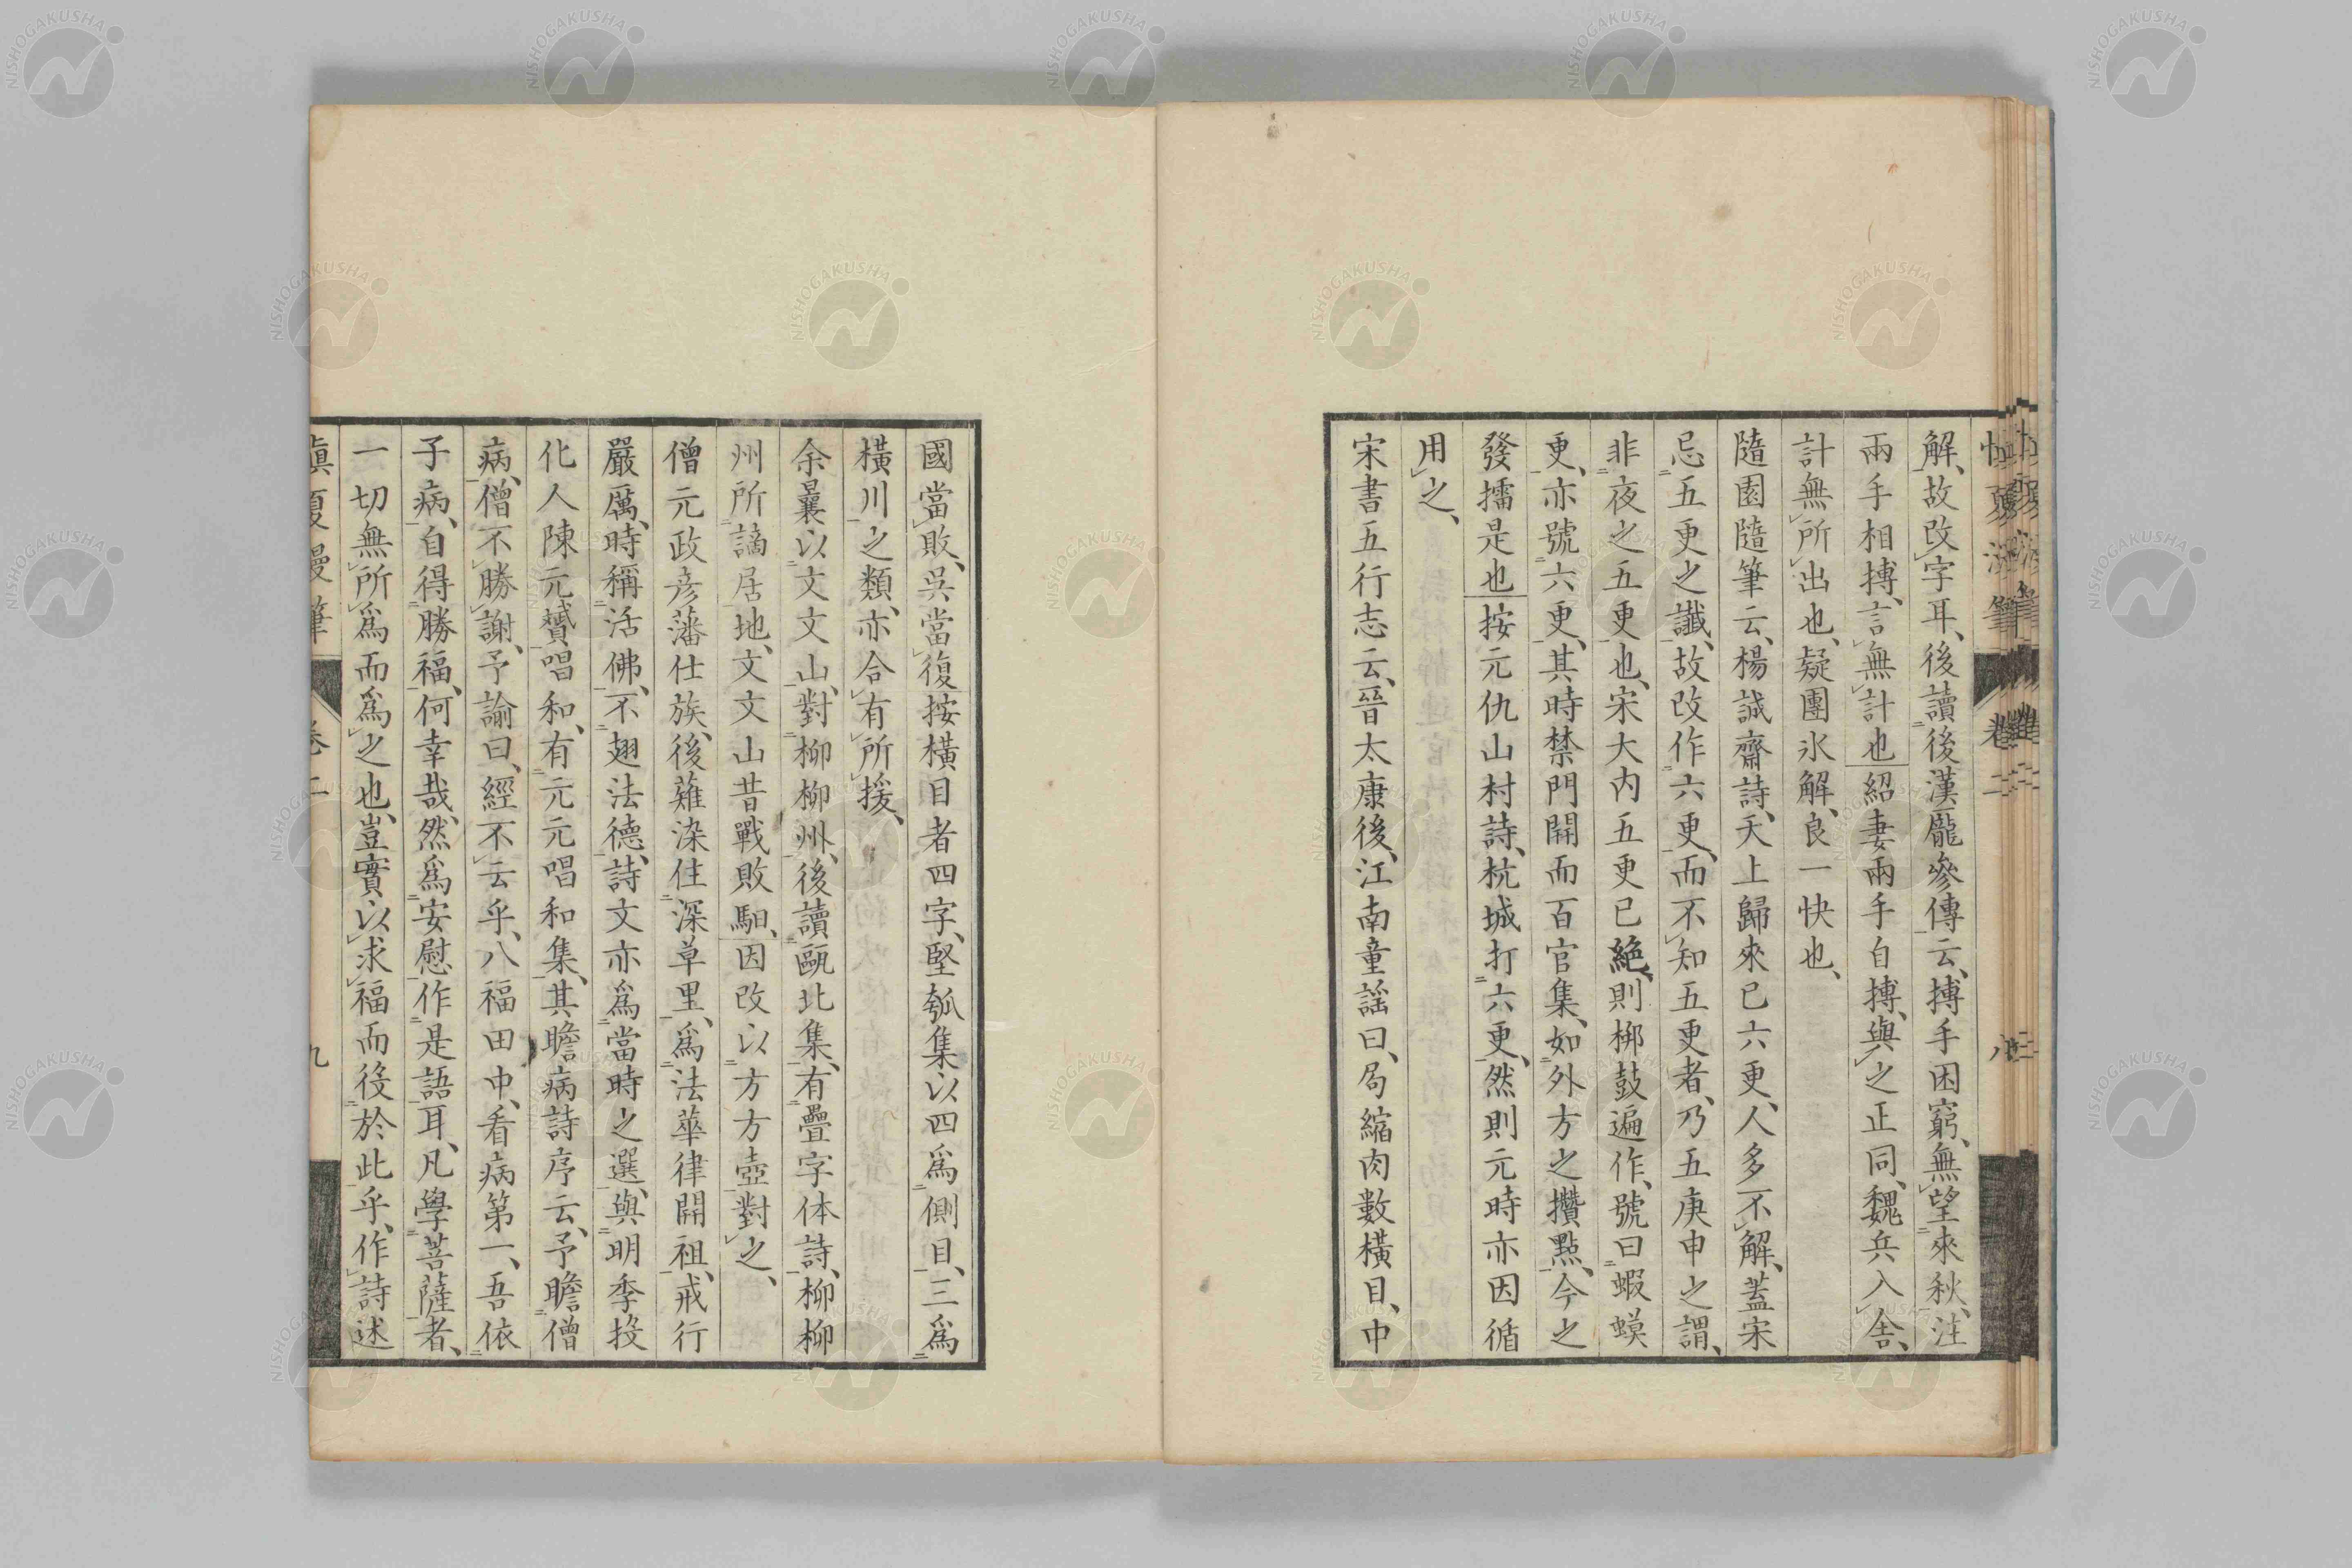 解、故改字耳、後讀後漢龐參傳云、搏手困窮、無望來秋、注
兩手相搏、言無計也紹妻兩手自搏、與之正同、魏兵入舎、
計無所出也、疑團氷解、良一快也、
隨園隨筆云、楊誠齋詩、天上歸來已六更、人多不解、蓋宋
忌五更之讖、故改作六更、而不知五更者、乃五庚申之謂、
非夜之五更也、宋大内五更已絶、則梆鼓遍作、號曰蝦蟆
更、亦號六更、其時禁門開而百官集、如外方之攢點、今之
發擂是也按元仇山村詩、杭城打六更、然則元時亦因循
用之、
宋書五行志云、晉太康後、江南童謡曰、局縮肉數橫目、中
國當敗、吳當復按橫目者四字、堅瓠集以四爲側目、三爲
橫川之類、亦合有所援、
余曩以文文山、對柳柳州、後讀甌北集、有疊字体詩、柳柳
州所謫居地、文文山昔戰敗馹、因改以方方壺對之、
僧元政彦藩仕族、後薙染住深草里、爲法華律開祖、戒行
嚴厲、時稱活佛、不翅法德、詩文亦爲當時之選、與明季投
化人陳元贇唱和、有元元唱和集、其瞻病詩序云、予瞻僧
病、僧不勝謝、予諭曰、經不云乎、八福田中、看病第一、吾依
子病、自得勝福、何幸哉、然爲安慰作是語耳、凡學菩薩者、
一切無所爲而爲之也、豈實以求福而役於此乎、作詩述
卷二
九